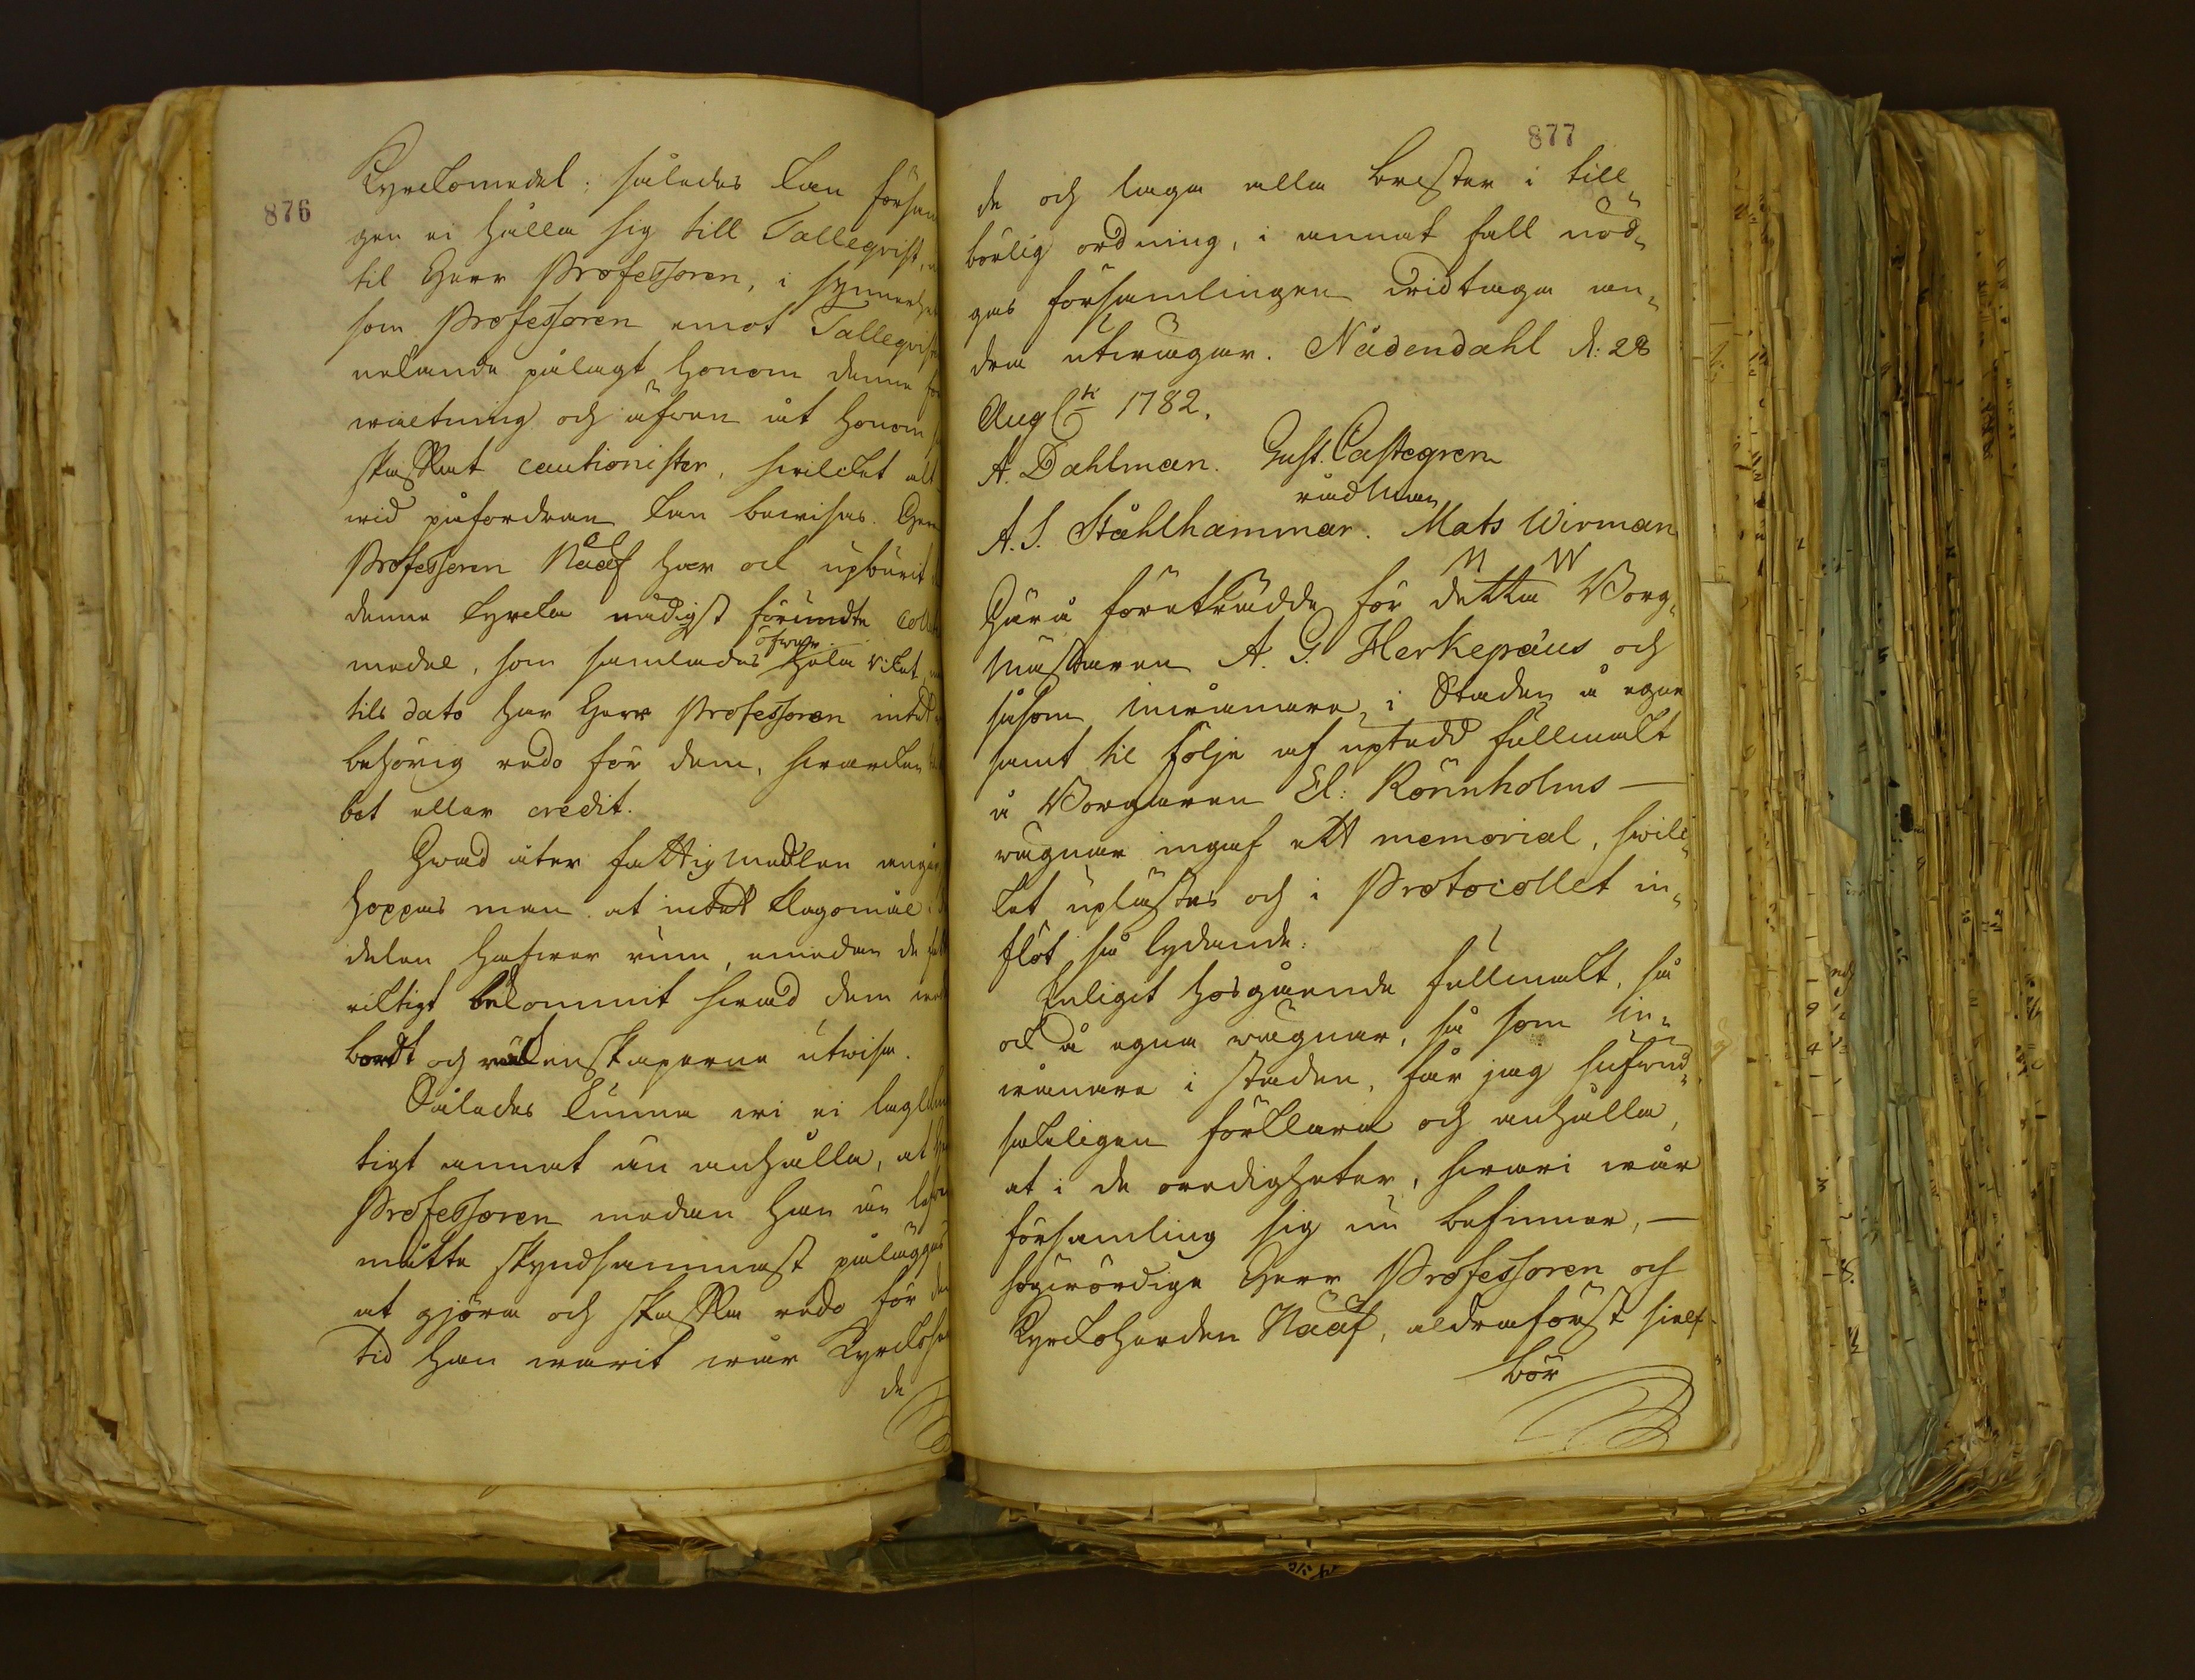 876
Kyrckomedel; således kan försam
gen ei hålla sig till Tallegvist,
til Herr Professoren, i synnerhet
som Professoren emot Tallegvist
nekande pålagt honom denne för
waltning och äfwen åt honom
skaffat cautionister, hwilcket alt
wid påfordran kan bewisas. Herr
Professoren Nääf har ock upburit
denne kyrcka nådigst förundte coll
medel, som samlades öfwer hela riket
tils dato har Herr Professoren intet
behörig redo för dem, hwarcken
bet eller credit.
Hwad åter fattigmedlen angå
hoppas man at intet klagomål
delen hafwer rum, emedan de
riktigt bekommit hwad dem
bordt och räkenskaperne utwisa.
Således kunna wi ei lagl
tigt annat än anhålla, at
Professoren medan han än lefwer
måtte skyndsammast påläggas
at gjöra och skaffa redo för den
tid han warit wår Kyrckohe
de
877
de och laga alla brister i till„
börlig ordning, i annat fall nöd„
gas församlingen widtaga an„
dra utwägar. Nådendahl d: 28
Augusti 1782.
A. Dahlman. Gust. Castegren
rådman
A. S. Ståhlhammar. Mats Wirman
M W
Härå företrädde för detta Borg„
mästaren A. G. Herkepæus och
såsom inwånare i Staden å egne
samt til följe af uptedd fullmakt
å Borgaren El: Rönnholms —
wägnar ingaf ett memorial, hwilc„
ket uplästes och i Protocollet in„
flöt så lydande:
Enligit hosgående fullmakt, så
ock å egna wägnar, så som in„
wånare i staden, får jag hufwud„
sakeligen förklara och anhålla,
at i de oredigheter, hwari wår
församling sig nu befinner, —
högwördige Herr Professoren och
Kyrckoherden Nääf, aldraförst sielf
bör